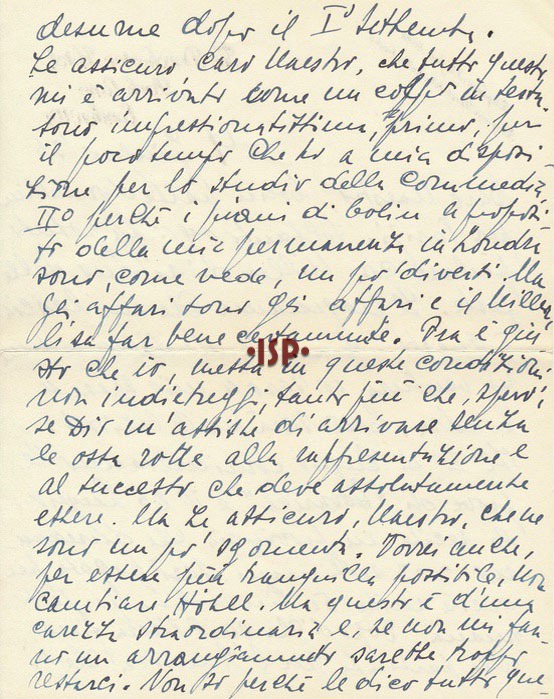 desume dopo il I° Settembre.
Le assicuro Caro Maestro, che tutto questo
mi è arrivato come un colpo in testa
sono impressionatissima, primo, per
il poco tempo che ho a mia disposi-
zione per lo studio della Commedia,
II° perchè i piani di Colin a proposi-
to della mia permanenza in Londra
sono, come vede, un po' diversi. Ma
gli affari sono gli affari e il
li sa far bene certamente. Ora è giu-
sto che io, messa in queste condizioni
non indietreggi, tanto più che, spero,
se Dio m'assiste di arrivare senza
le ossa rotte alla rappresentazione e
al successo che deve assolutamente
essere. Ma Le assicuro, Maestro, che ne
sono un po' sgomenta. Vorrei anche,
per essere più tranquilla possibile, non
cambiare Hôtel. Ma questo è d'una
carezza straordinaria e, se non mi fan-
no un arrangiamento sarebbe troppo
restarci. Non so perchè le dico tutto que
·ISP·